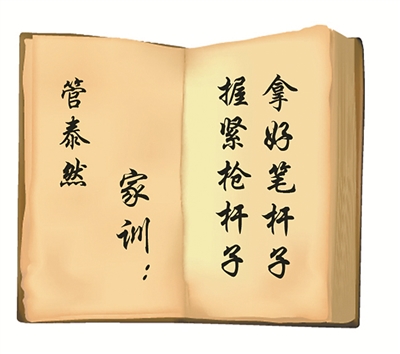 管泰然
家训：
拿好笔杆子
握紧枪杆子